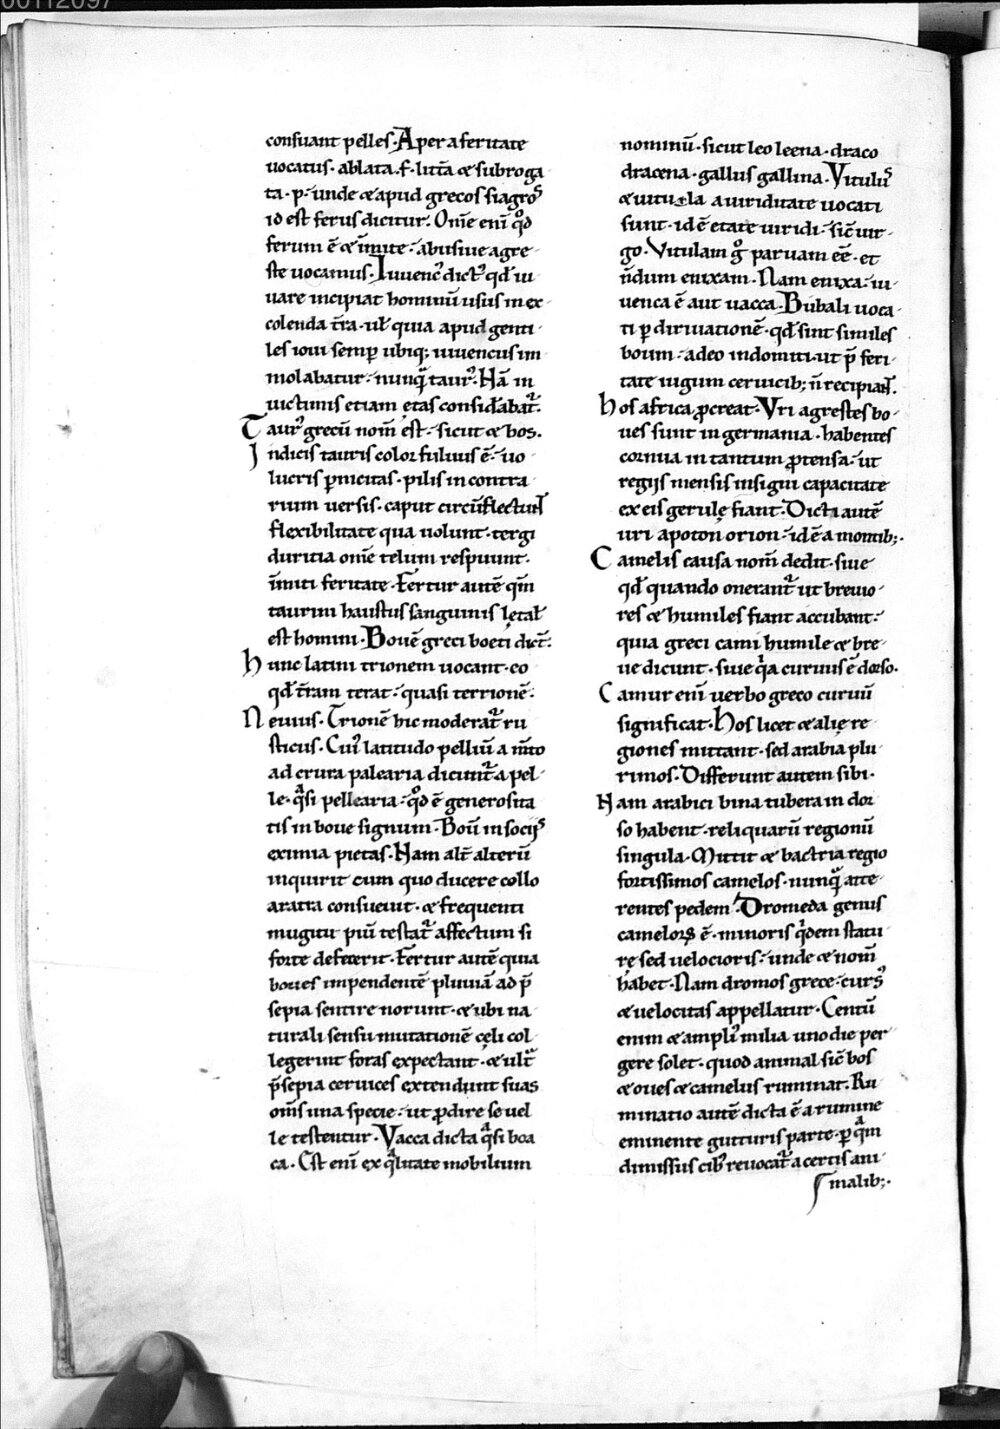 00112097
consuant pelles. Aper a feritate
uocatus. ablata .f. littā & subroga
ta .p. unde & apud grecos siagros
id est ferus dicitur. Om̄e eni qͦd
ferum ē & īmite. abusiue agre
ste uocamus. Iuuenc᾿ dict᾿ qd iu
uare incipiat hominū usus in ex
colenda t̄ra. ul̄ quia apud genti
les ioui semp̱ ubiq; iuuencus im
molabatur. nunqͣ taur᾿. Nā in
uictimis etiam ętas considabat᷑.
Taur᾿ grecū nom̄ est. sicut & bos.
Indicis tauris color fuluus ē. uo
lucris p̱nicitas. pilis in contra
rium uersis. caput circūflectunt
flexibilitate qua uolunt. tergi
duritia om̄e telum respuunt.
īmiti feritate. Fertur autē qm̄
taurum haustus sanguinis lętal̄
est homini. Bouē greci boeti dict̄.
hunc latini trionem uocant. eo
qd t̄ram terat. quasi terrionē.
Neuius. Trionē hic moderat᷑ ru
sticus. Cui᾿ latitudo pelliū a m̄to
ad crura palearia dicunt᷑ a pel
le. qͣsi pellearia. qͦd ē generosita
tis in boue signum. Boū in socijs
eximia pietas. Nam alt̄ alterū
inquirit cum quo ducere collo
aratra consueuit. & frequenti
mugitu piū testat᷑ affectum si
forte defecerit. Fertur autē quia
boues impendentē pluuiā ad p̄
sepia sentire norunt. & ubi na
turali sensu mutationē cęli col
legerint foras expectant. & ult᷑
p̄sepia ceruices extendunt suas
om̄s una specie. ut ꝓdire se uel
le testentur. Vacca dicta qͣsi boa
ca. Est eni ex qͣlitate mobilium
nominū. sicut leo leena. draco
dracena. gallus gallina. Vitulus
& uitula a uiriditate uocati
sunt. id ē etate uiridi. sic̄ uir
go. Vitulam gͦ paruam eē. et
n̄dum enixam. Nam enixa. iu
uenca ē aut uacca. Bubali uoca
ti p̱ diriuationē. qd sint similes
boum. adeo indomiti. ut p̄ feri
tate iugum ceruicib; n̄ recipiant.
hos africa ꝓcreat. Vri agrestes bo
ues sunt in germania. habentes
cornua in tantum ꝓtensa. ut
regijs mensis insigni capacitate
ex eis gerulę fiant. Dicti autē
uri apoton orion. id ē a montib;.
Camelis causa nom̄ dedit. siue
qd quando onerant᷑ ut breuio
res & humiles fiant accubant.
quia greci cami humile & bre
ue dicunt. siue qͣa curuus ē dorso.
Camur eni uerbo greco curuū
significat. hos licet & alię re
giones mittant. sed arabia plu
rimos. Differunt autem sibi.
Nam arabici bina tubera in dor
so habent. reliquarū regionū
singula. Mittit & bactria regio
fortissimos camelos. nunqͣ atte
rentes pedem. Dromeda genus
cameloꝝ ē. minoris qͥdem statu
rę sed uelocioris. unde & nom̄
habet. Nam dromos grece. curs᾿
& uelocitas appellatur. Centū
enim & ampli᾿ milia uno die per
gere solet. quod animal sic̄ bos
& oues & camelus ruminat. Ru
minatio autē dicta ē a rumine
eminente gutturis parte. p̱ qͣm
dimissus cib᾿ reuocat᷑ a certis ani
malib;.